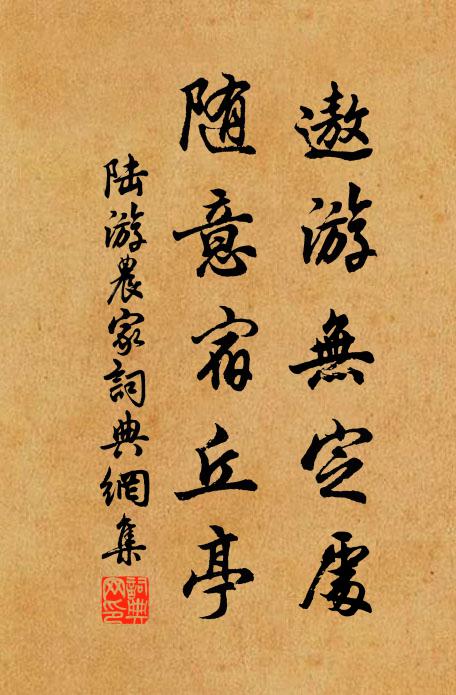 遨游無定處
随意宿丘亭
陆游農家詞典網集
詞典網印